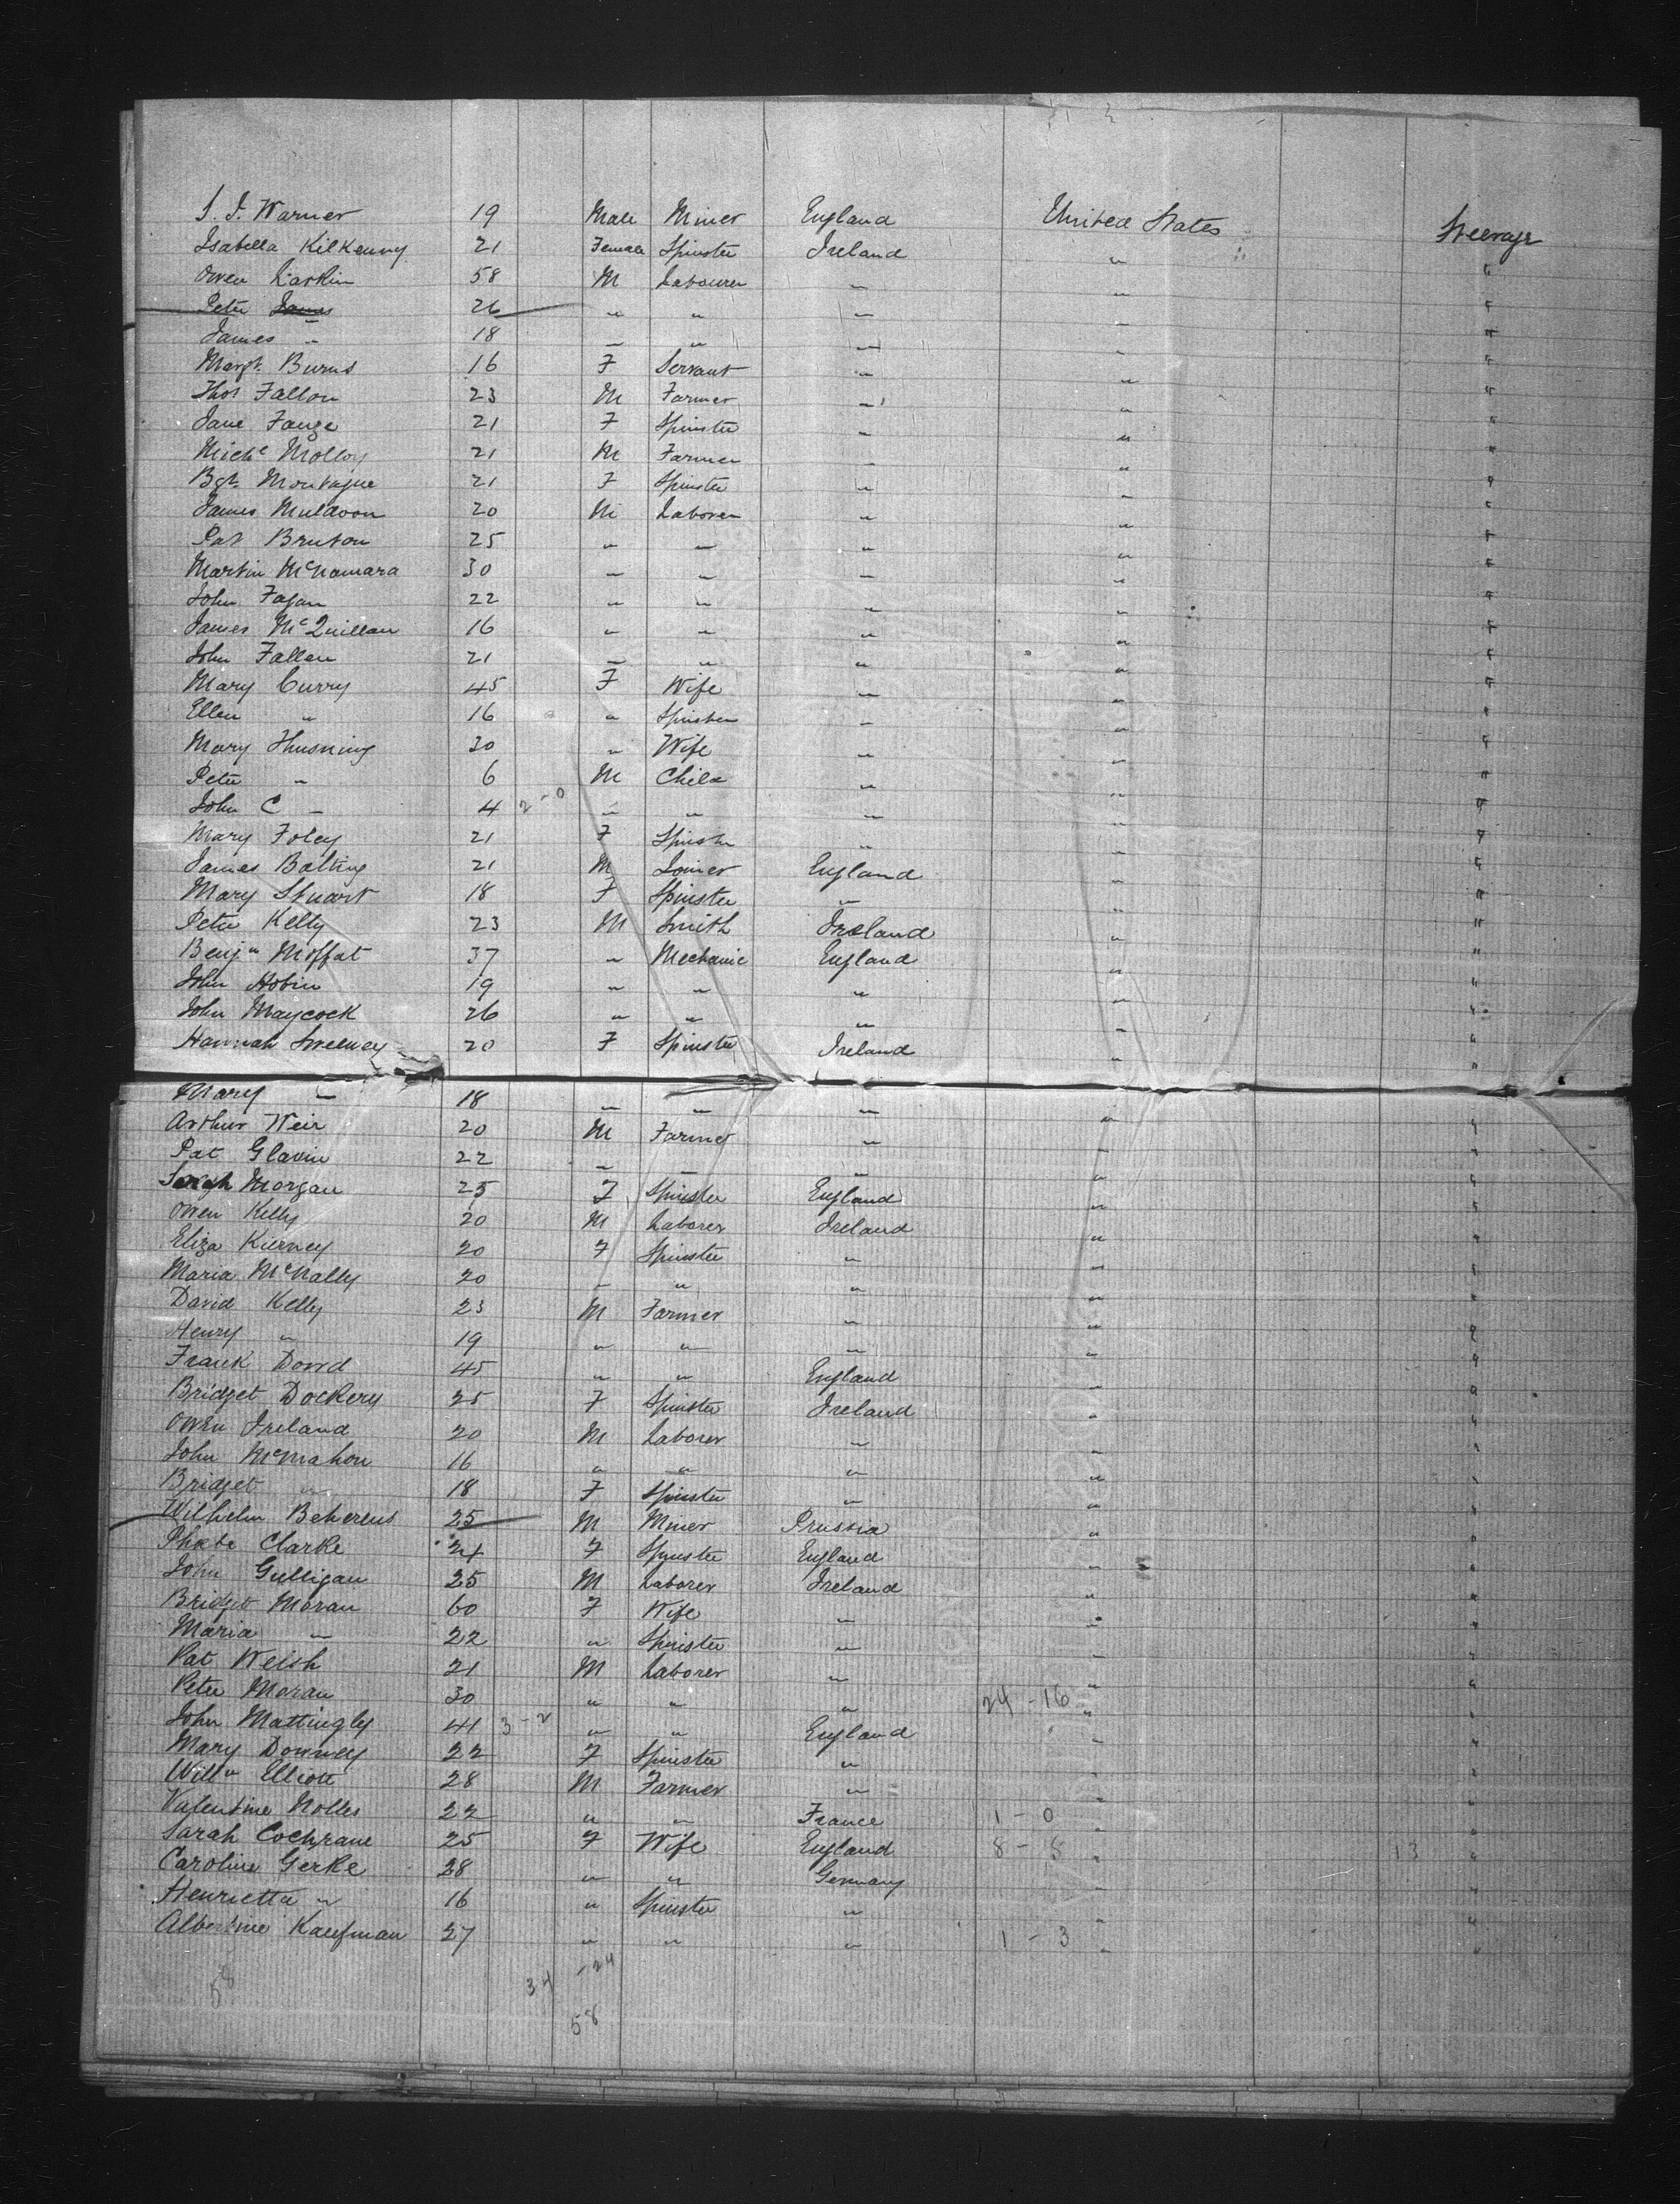 S. J. Warner 19 Male Miner England United States Steerage
Isabella Kilkenny 21 Female Spinster Ireland " "
Owen Larkin 58 M Labourer " " "
Peter James 26 " " " " "
James " 18 " " " " "
Margt. Burns 16 F Servant " " "
Thos Fallon 23 M Farmer " " "
Jane 21 F Spinster " " "
Michl Molloy 21 M Farmer " " "
Bgt. Montague 21 F Spinster " " "
James Muldoon 20 M Laborer " " "
Pat Bruton 25 " " " " "
Martin McNamara 30 " " " " "
John Fagan 22 " " " " "
James McQuillan 16 " " " " "
John Fallen 21 " " " " "
Mary Curry 45 F Wife " " "
Ellen " 16 " Spinster " " "
Mary 30 " Wife " " "
Peter " 6 M Child " " "
John C " 4 2-0 " " " " "
Mary Foley 21 F Spinster " " "
James Bolting 21 M Joiner England " "
Mary Stuart 18 F Spinster " " "
Peter Kelly 23 M Smith Ireland " "
Benjn Moffat 37 " Mechanic England " "
John Hobin 19 " " " " "
John Maycock 26 " " " " "
Hannah Sweeney 20 F Spinster Ireland " "
Mary " 18 " " " " "
Arthur Weir 20 M Farmer " " "
Pat Glavin 22 " " " " "
Sarah Morgan 25 F Spinster England " "
Owen Kelly 20 M Laborer Ireland " "
Eliza Kierney 20 F Spinster " " "
Maria McNally 20 " " " " "
David Kelly 23 M Farmer " " "
Henry " 19 " " " " "
Frank Dowd 45 " " England " "
Bridget Dockery 25 F Spinster Ireland " "
Owen Ireland 20 M Laborer " " "
John McMahon 16 " " " " "
Bridget " 18 F Spinster " " "
Wilhelm Beherens 25 M Miner Prussia " "
Phoebe Clarke 24 F Spinster England " "
John Gulligan 25 M Laborer Ireland " "
Bridget Moran 60 F Wife " " "
Maria " 22 " Spinster " " "
Pat Welsh 21 M Laborer " " "
Peter Moran 30 " " " 24-16 " "
John Mattingly 41 3-2 " " England " "
Mary Downey 22 F Spinster " " "
Willm Elliott 28 M Farmer " " "
Valentine Nolles 22 " " France 1-0 " "
Sarah Cochrane 25 F Wife England 8-5 " 13 "
Caroline Gerke 28 " " Germany " "
Henrietta " 16 " Spinster " " "
Albertine Kaufman 27 " " " 1-3 " "
58 34 -24
58